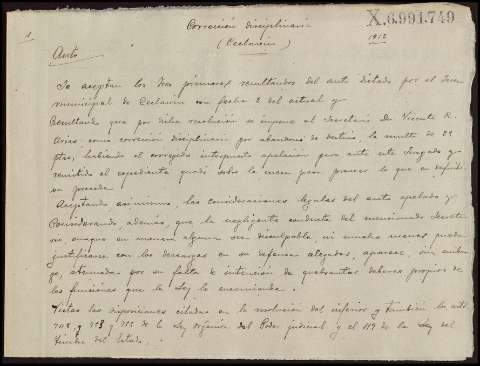 Corrección disciplinaria
X.6.991.749
(Ceclavín)
1912
Auto
Se aceptan los dos primeros resultandos del auto dictado por el
municipal de Ceclavín con fecha 2 del actual y
Resultando que por dicha resolución se impuso al Secretario Dn Vicente R.
Arias como corrección disciplinaria por abandono de destino, la multa de 24
ptas, habiendo el corregido interpuesto apelación para ante este Juzgado y
remitido el expediente quedó sobre la mesa para proveer lo que en
su proceda
Aceptando, asimismo, las consideraciones legales del auto apelado y
Considerando, además, que la negligente conducta del mencionado Secreta
rio, aunque en manera alguna sea disculpable, ni mucho menos pueda
justificarse con los descargos en su defensa alegados, aparece, sin embar
go, atenuada por su falta de intención de quebrantar deberes propios de
las funciones que la Ley le encomienda.
Vistas las disposiciones citadas en la resolución del inferior y también los arts
y de la Ley orgánica del Poder judicial y el 119 de la Ley del
Timbre del Estado.